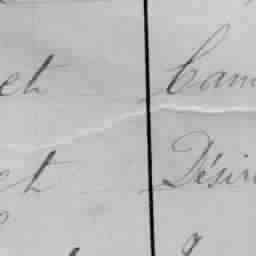 et Cam
et Désir